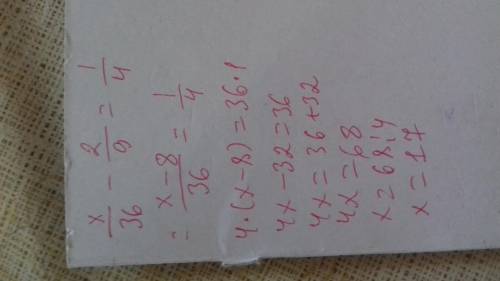 x/36 - 2/9 = 1/4
= x-8/36 = 1/4
4·(x-8)=36·1
4x-32=36
4x=36+32
4x=68
x=68:4
x=17